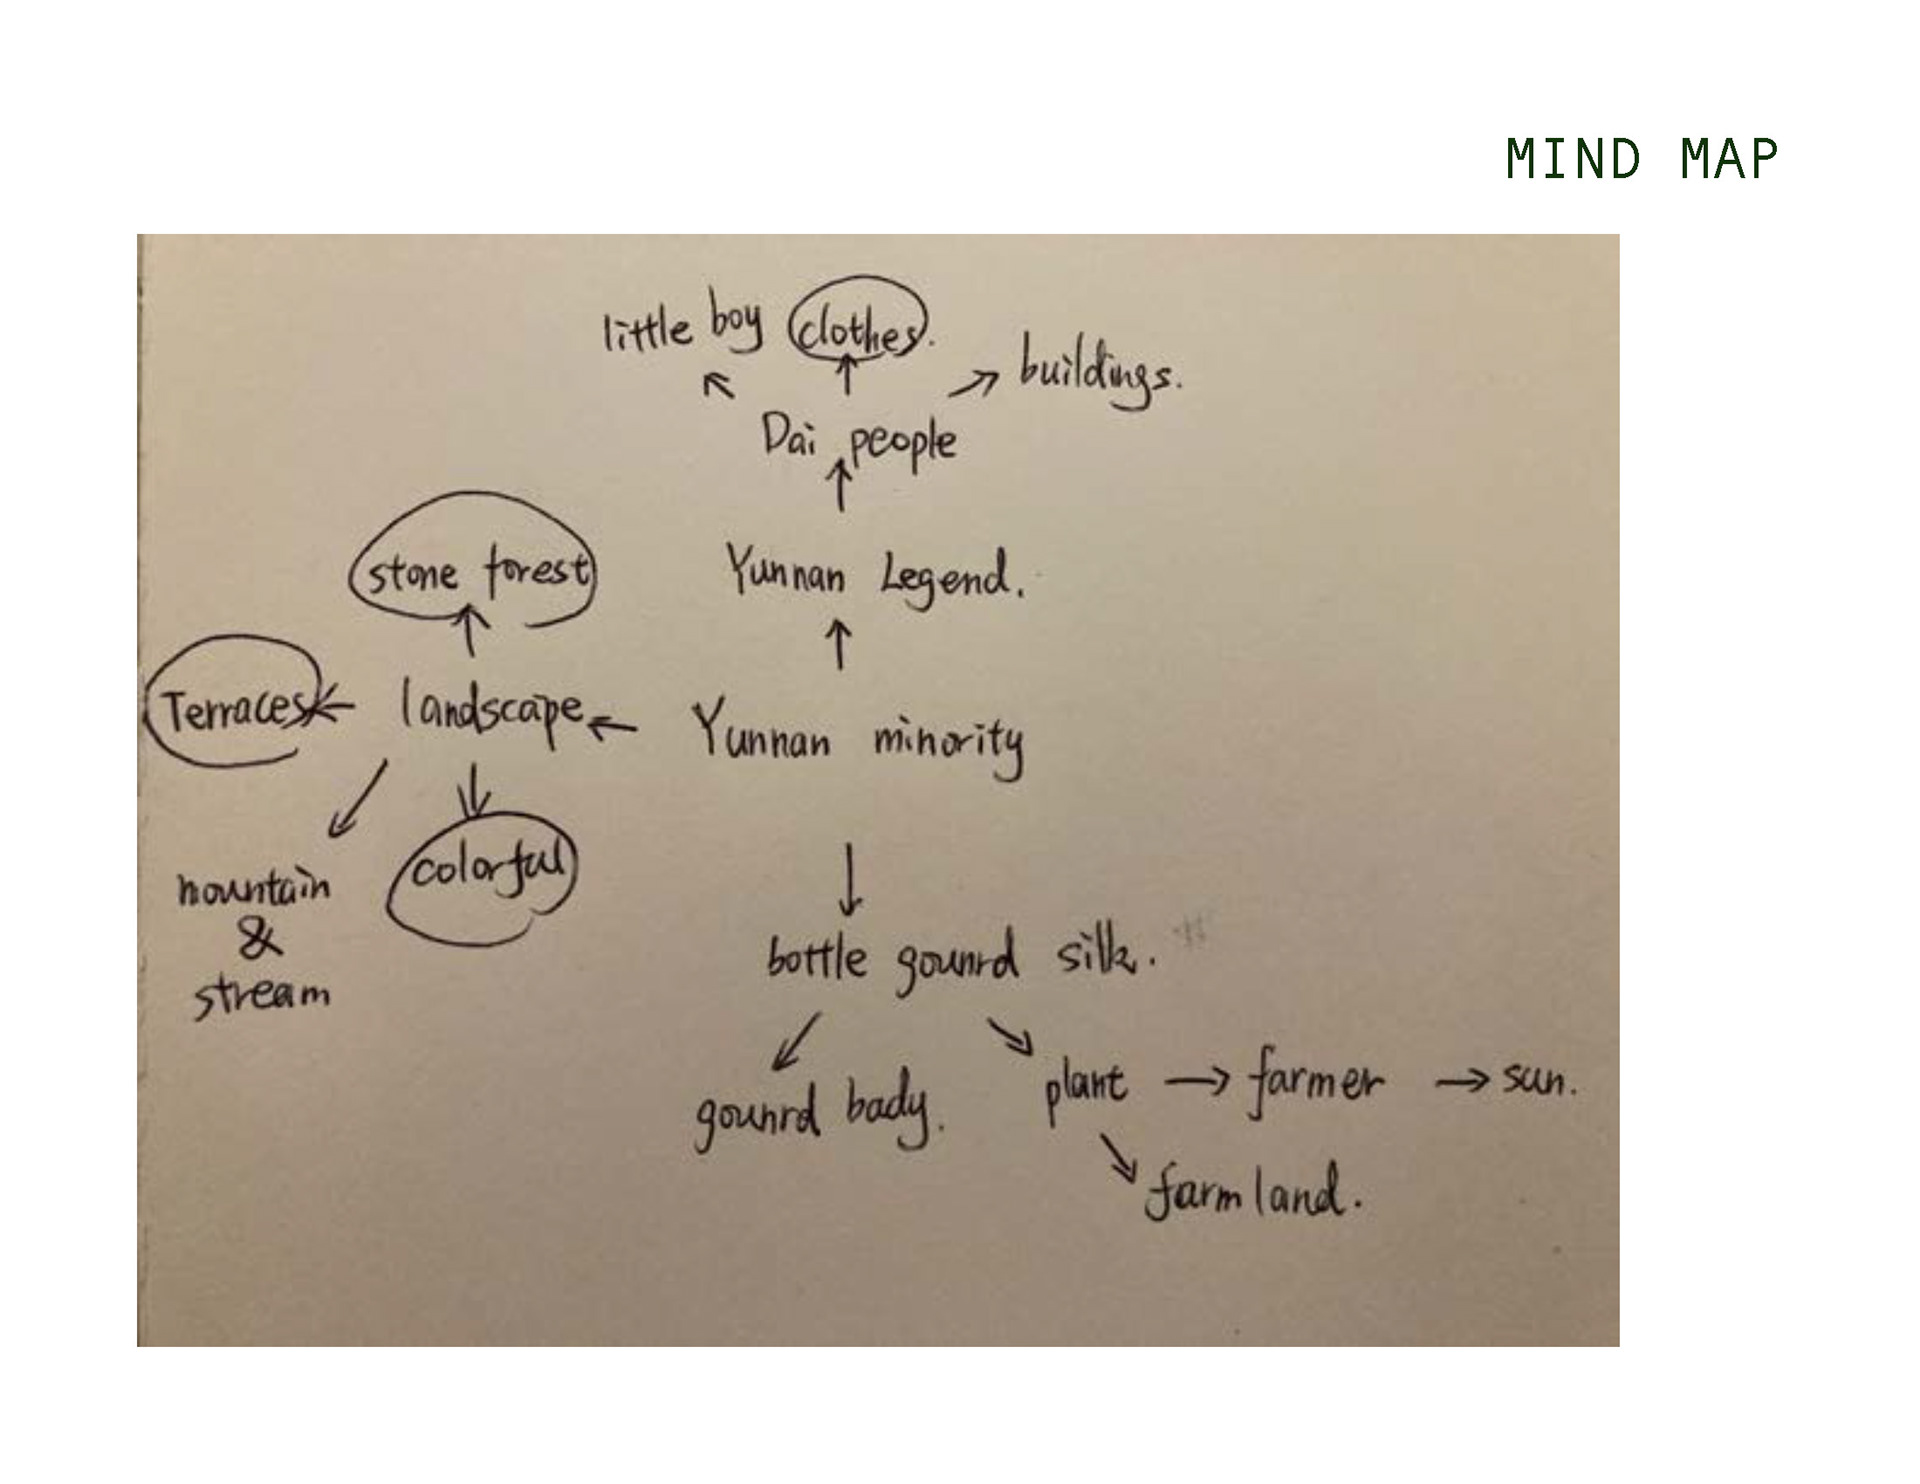 MIND MAP
little boy clothes.
buildings.
Dai people
stone forest
Yunnan Legend.
Terraces
landscape
Yunnan minority
colorful
mountain
&
stream
bottle gounrd silk.
gounrd bady.
plant → farmer → sun.
farmland.